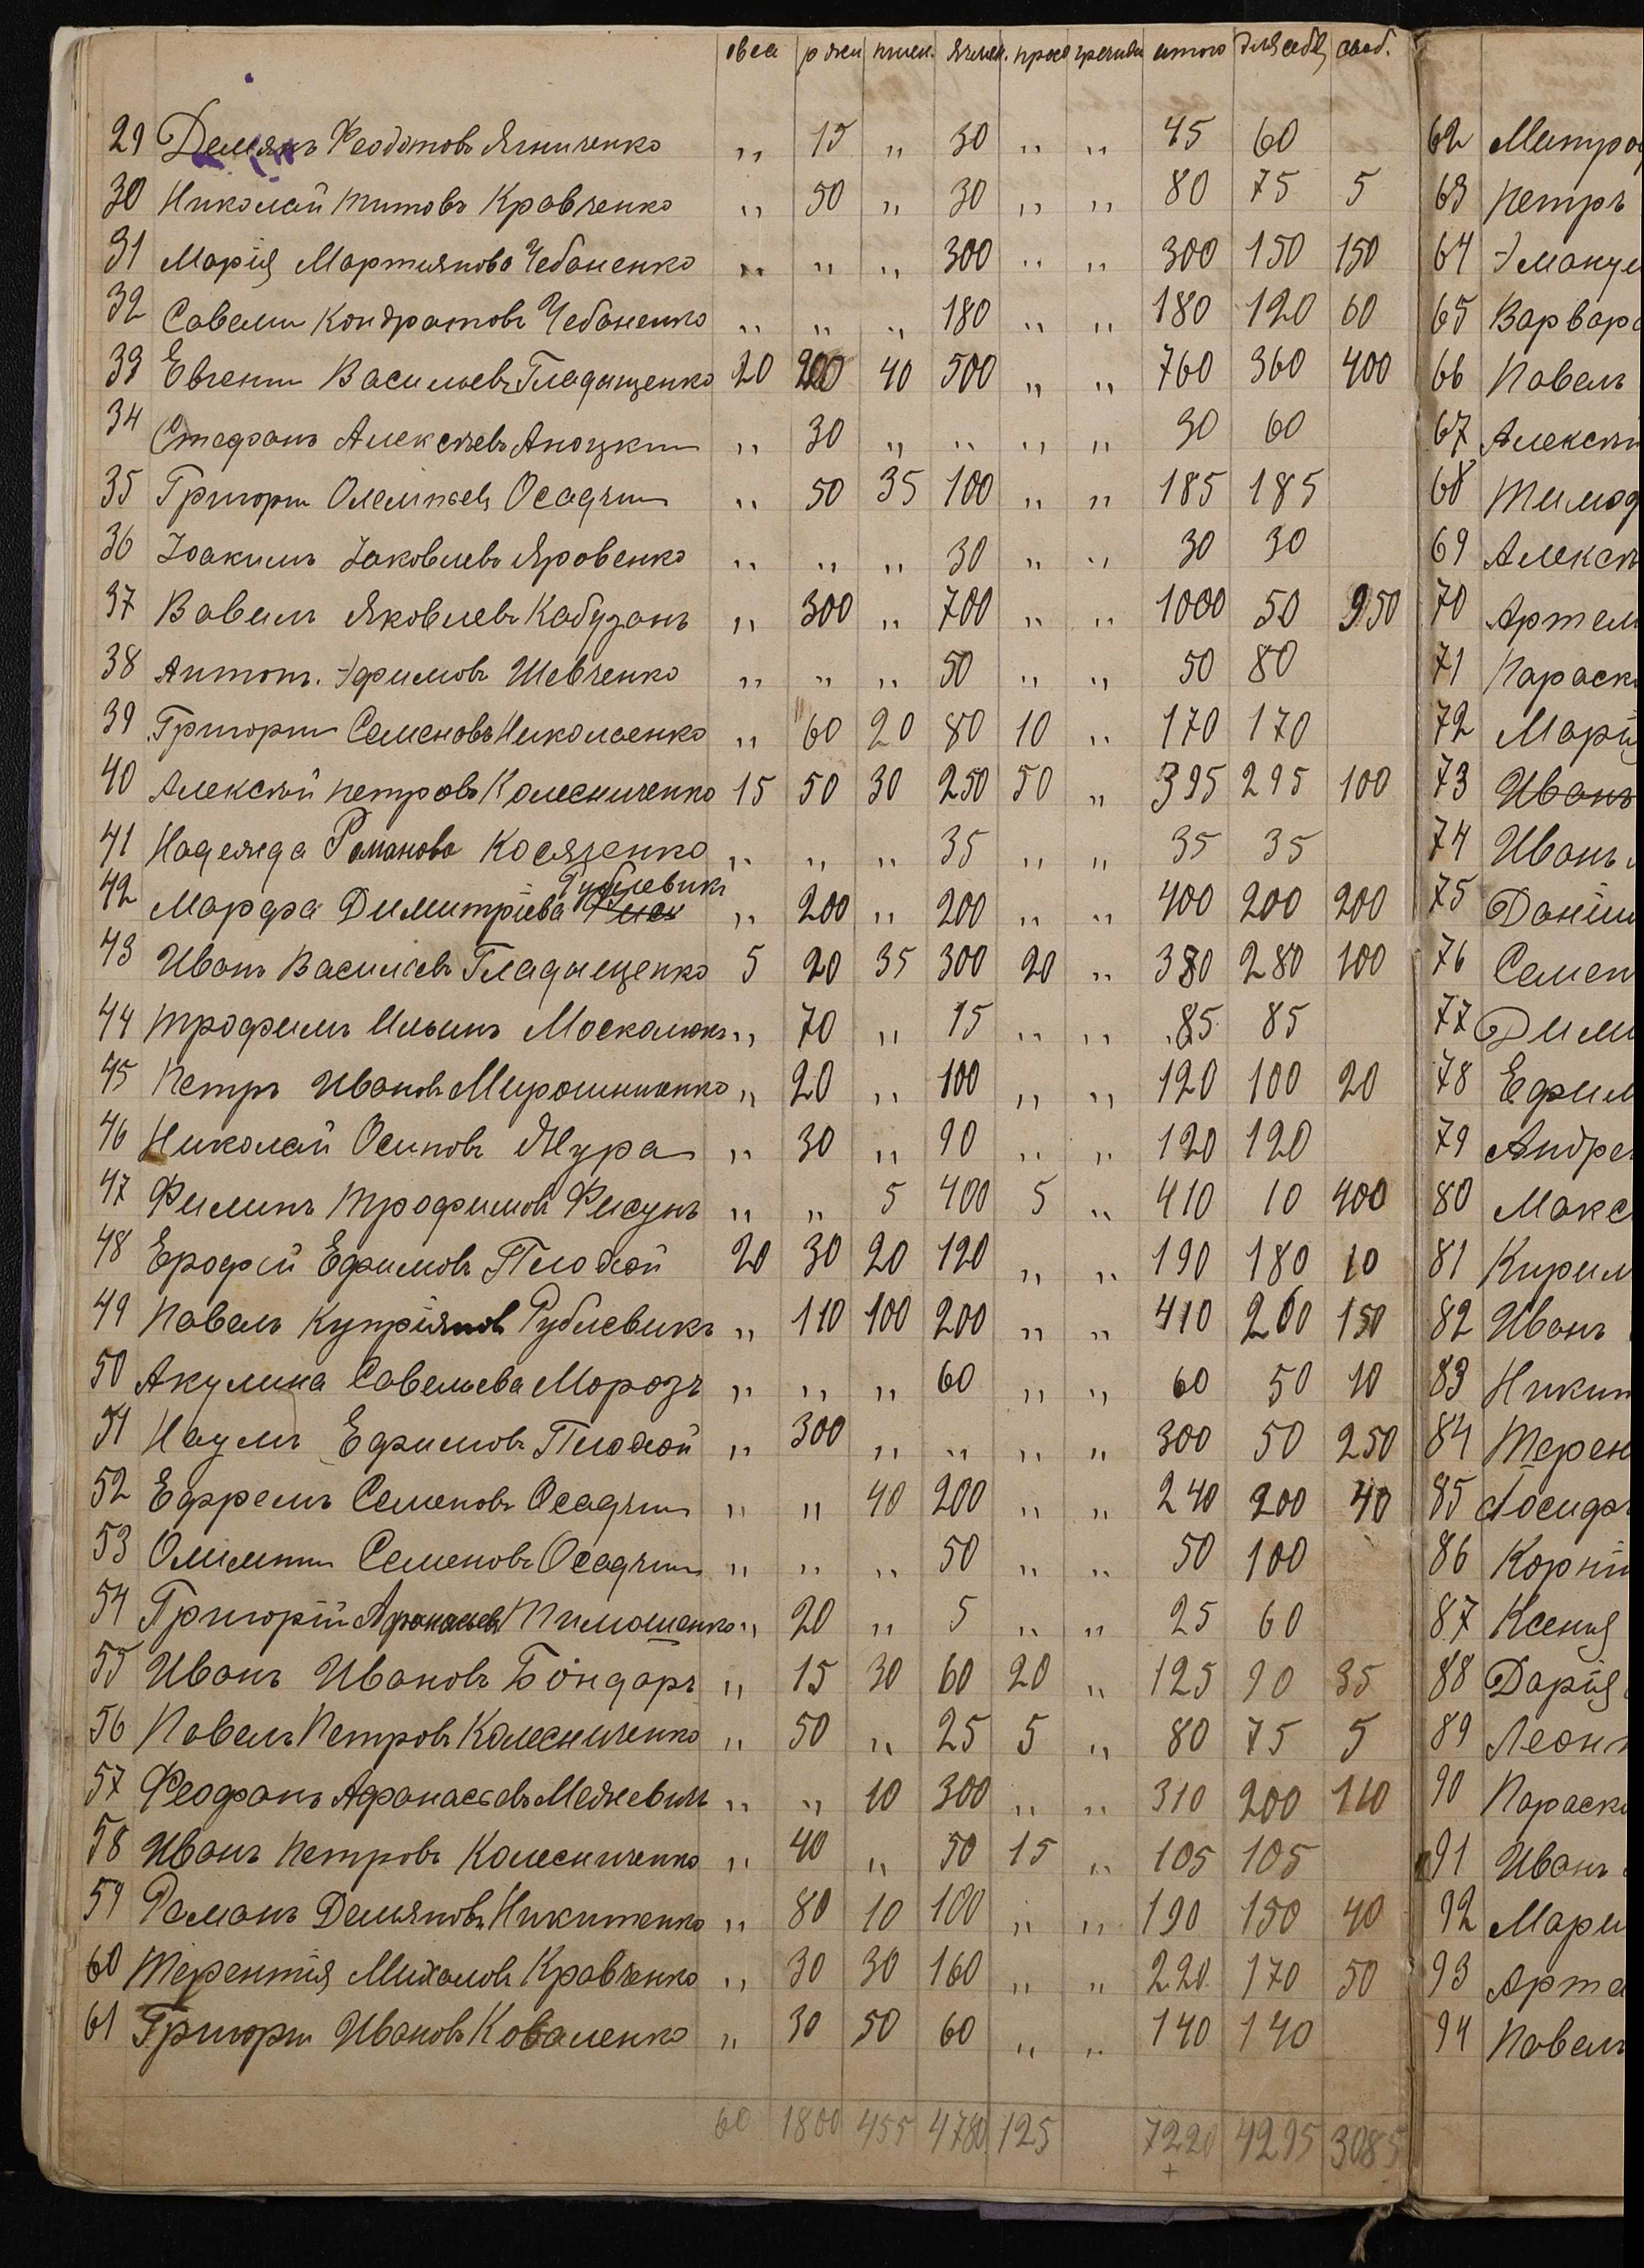 овса ржи пшен. ячмен. просо гречихи итого для себя своб.
29 Демянъ Феодотовъ Ягниченко " 15 " 30 " " 45 60
30 Николай Титовъ Кравченко " 50 " 30 " " 80 75 5
31 Марія Мартиянова Чебаненко " " " 300 " " 300 150 150
32 Савели Кондратовъ Чебаненко " " " 180 " " 180 120 60
33 Евгени Васильевъ Гладыщенко 20 200 40 500 " " 760 360 400
34 Стефанъ Алексѣевъ " 30 " " " " 30 60
35 Григори Олемпіевъ Осадчи " 50 35 100 " " 185 185
36 Іоакимъ Іаковлевъ Яровенко " " " 30 " " 30 30
37 Вавилъ Яковлевъ Кабузанъ " 300 " 700 " " 1000 50 950
38 Антонъ Эфимовъ Шевченко " " " 50 " " 50 80
39 Григори Семеновъ Николаенко " 60 20 80 10 " 170 170
40 Алексѣй Петровъ Колесниченко 15 50 30 250 50 " 395 295 100
41 Надежда Романова Косяченко " " " 35 " " 35 35
42 Марфа Димитріева Рублевикъ " 200 " 200 " " 400 200 200
43 Иванъ Васильевъ Гладыщенко 5 20 35 300 20 " 380 280 100
44 Трофимъ Ильинъ Москалюкъ " 70 " 15 " " 85 85
45 Петръ Ивановъ Мирошниченко " 20 " 100 " " 120 100 20
46 Николай Осиповъ Жура " 30 " 90 " " 120 120
47 Филипъ Трофимовъ Фисунъ " " 5 400 5 " 410 10 400
48 Ерофій Ефимовъ Плохой 20 30 20 120 " " 190 180 10
49 Павелъ Купріяновъ Рублевикъ " 110 100 200 " " 410 260 150
50 Акулина Савельева Морозъ " " " 60 " " 60 50 10
51 Наумъ Ефимовъ Плохой " 300 " " " " 300 50 250
52 Ефремъ Семеновъ Осадчи " " 40 200 " " 240 200 40
53 Олимпи Семеновъ Осадчи " " " 50 " " 50 100
54 Григорій Афанасьевъ Тимошенко " 20 " 5 " " 25 60
55 Иванъ Ивановъ Бондаръ " 15 30 60 20 " 125 90 35
56 Павелъ Петровъ Колесниченко " 50 " 25 5 " 80 75 5
57 Феофанъ Афанасьевъ Мажевичъ " " 10 300 " " 310 200 110
58 Иванъ Петровъ Колесниченко " 40 " 50 15 " 105 105
59 Романъ Демяновъ Никитенко " 80 10 100 " " 190 150 40
60 Терентія Михаловъ Кравченко " 30 30 160 " " 220 170 50
61 Григори Ивановъ Коваленко " 30 50 60 " " 140 140
60 1800 455 4780 125 7220 4295 3085
62 Митроф
63 Петръ
64 Эмануи
65 Варвара
66 Павелъ
67 Алексѣй
68 Тимоф
69 Алексѣ
70 Артем
71 Параск
72 Марія
73 Иванъ
74 Иванъ
75 Даніил
76 Семен
77 Дими
78 Ефим
79 Андре
80 Макс
81 Кирил
82 Иванъ
83 Никит
84 Терен
85 Іосифъ
86 Корні
87 Ксенія
88 Дарія
89 Леонт
90 Параск
91 Иванъ
92 Мари
93 Артем
94 Павелъ